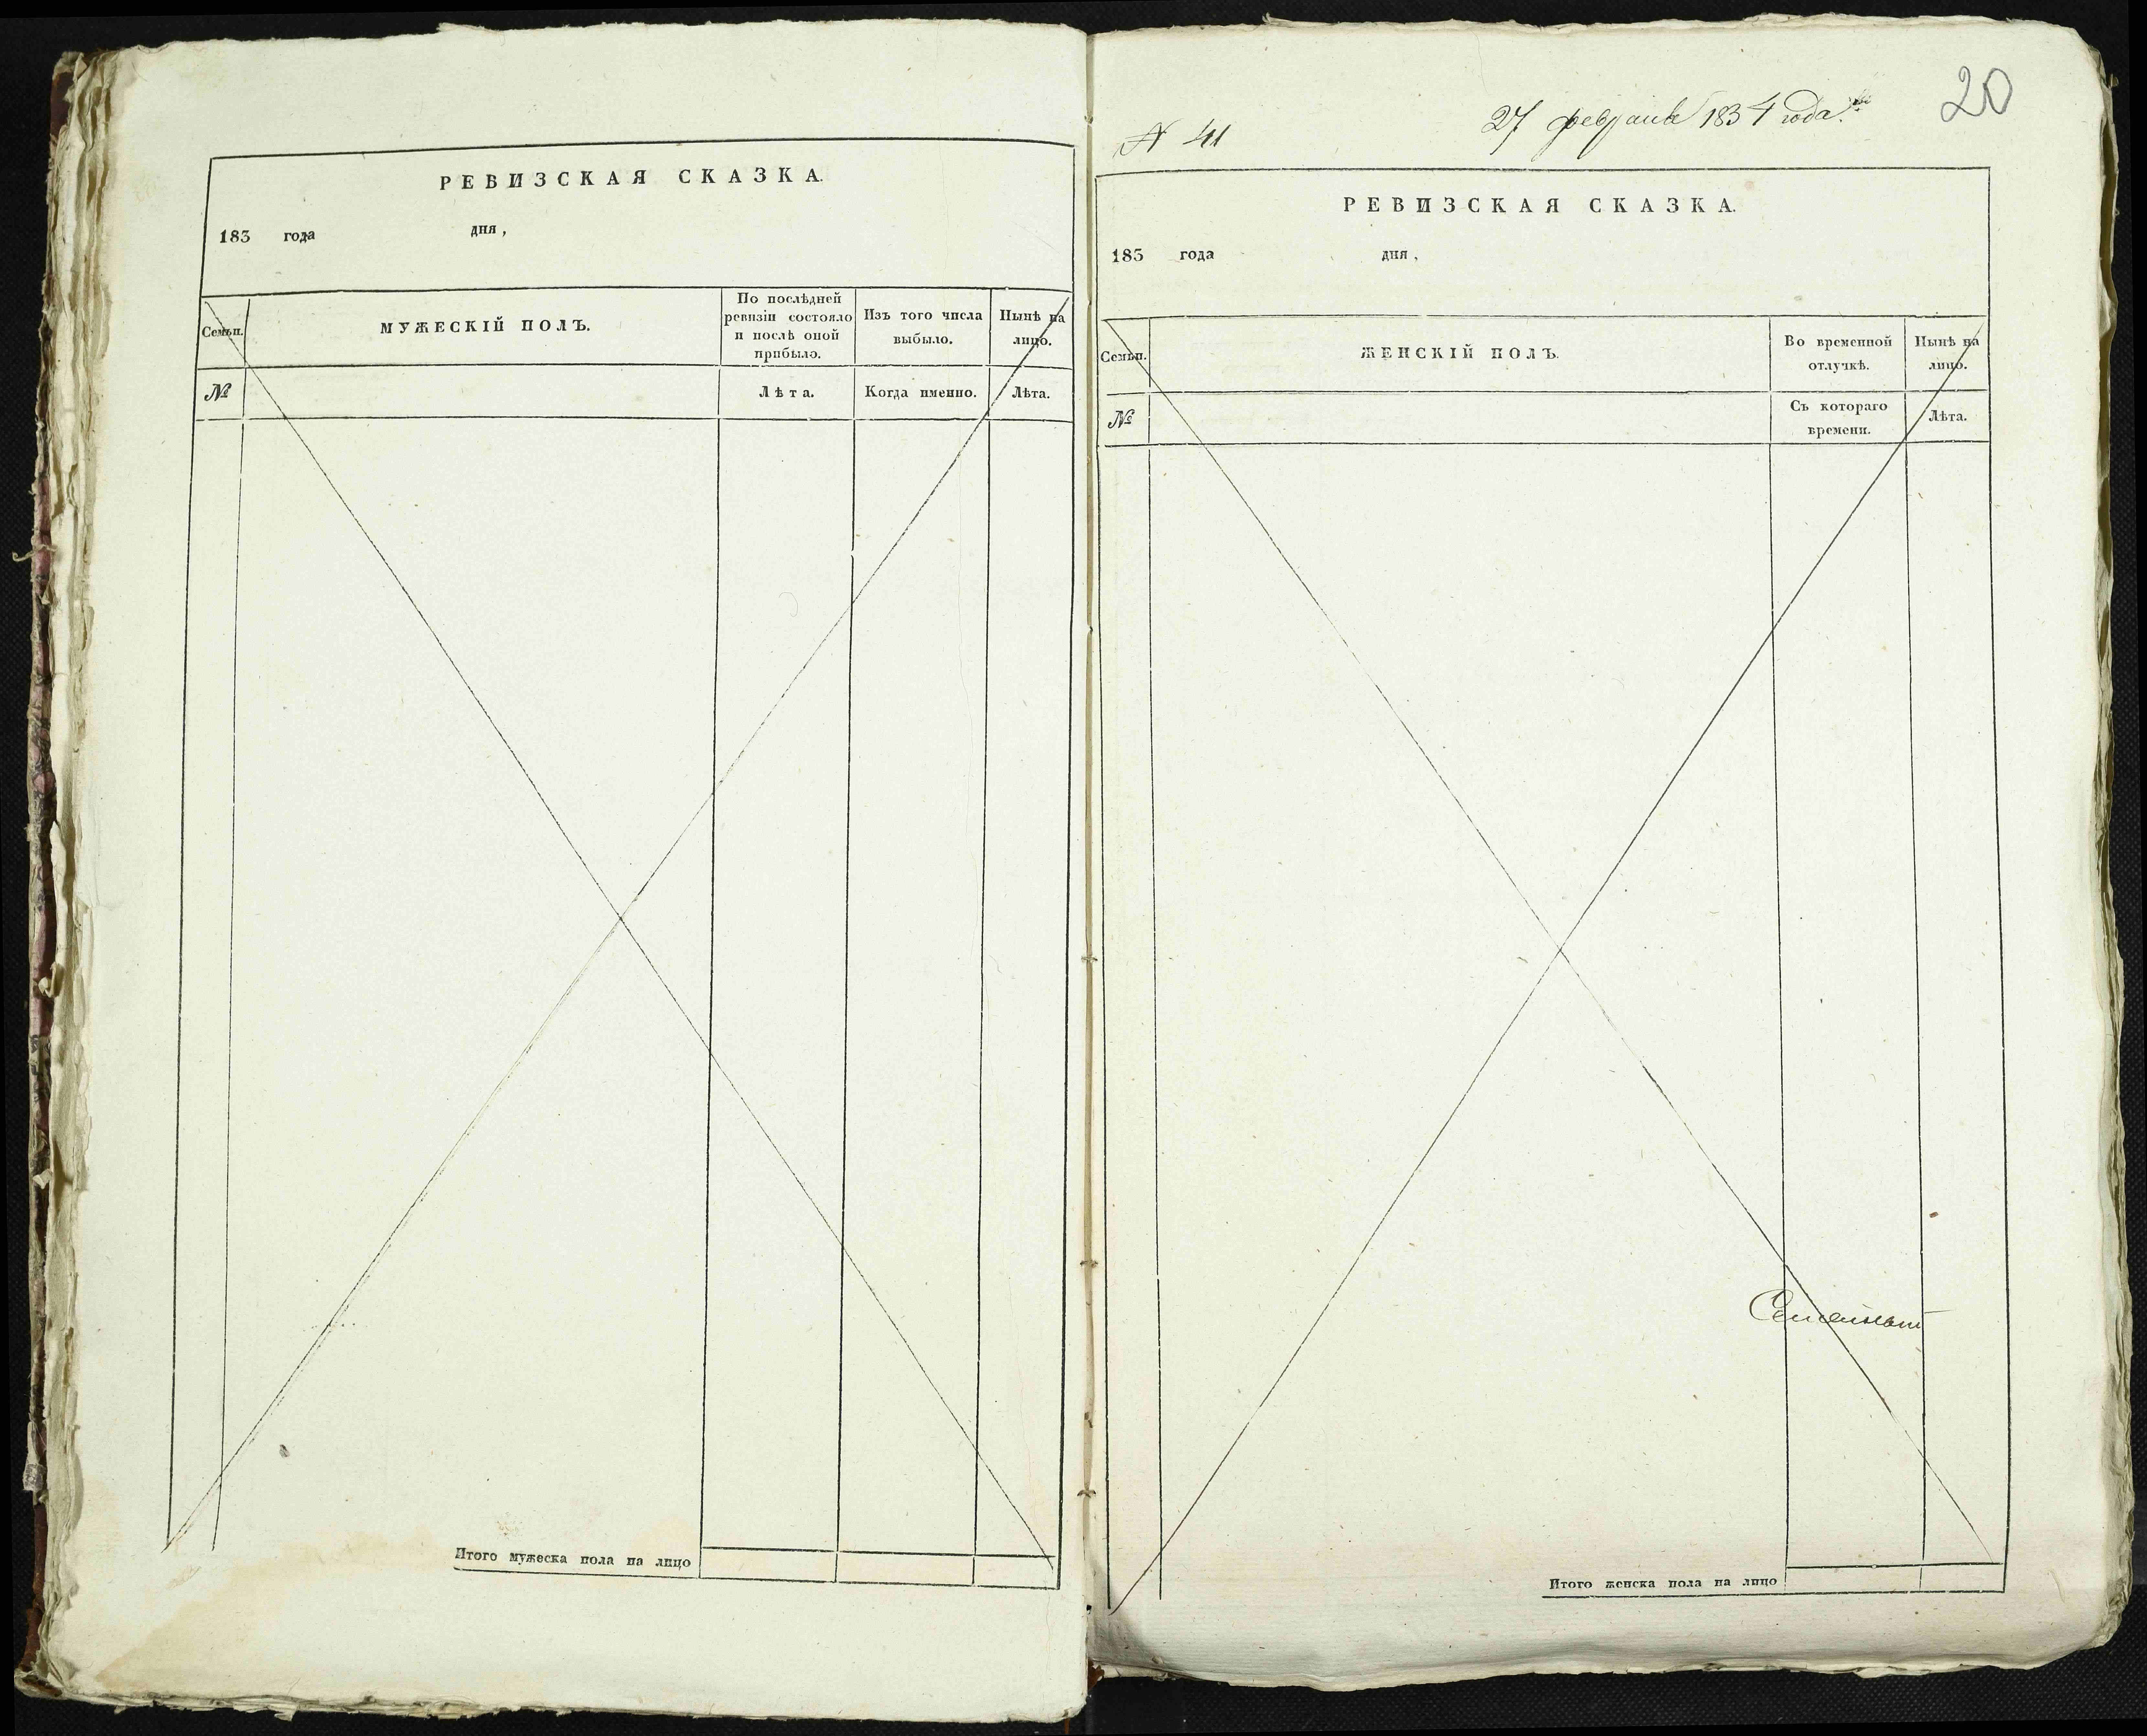 РЕВИЗСКАЯ СКАЗКА.
183 года дня,
Семьи.
МУЖЕСКІЙ ПОЛЪ.
По послѣдней
ревизіи состояло
и послѣ оной
прибыло.
Изъ того числа
выбыло.
Нынѣ на
лицо.
№
Лѣта.
Когда именно.
Лѣта.
Итого мужеска пола на лицо
20
27 февраля 1834 года.
N 41
РЕВИЗСКАЯ СКАЗКА.
183 года дня,
Семьи.
ЖЕНСКІЙ ПОЛЪ.
Во временной
отлучкѣ.
Нынѣ на
лицо.
№
Съ котораго
времени.
Лѣта.
Итого женска пола на лицо